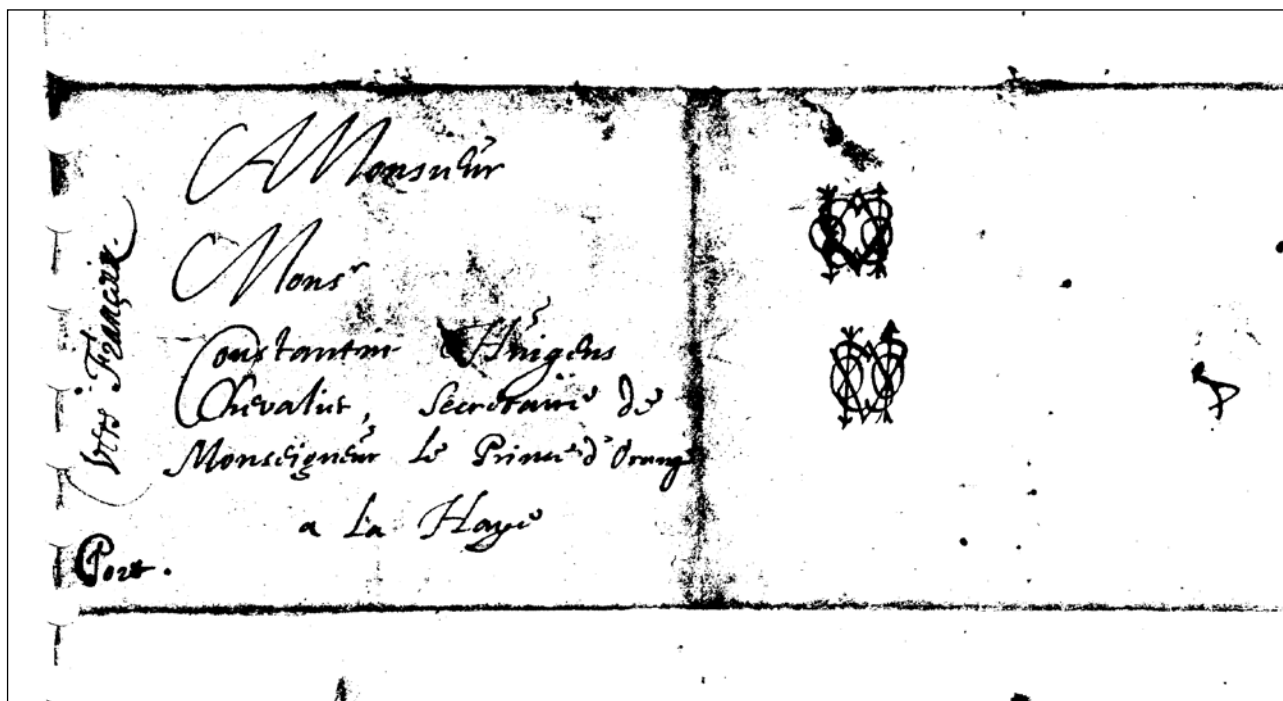 A Monsieur
Monsr
Constantin Huigens
Chevalier, Secretaire de
Monseigneur le Prince d'Orange
a La Haye
Port.